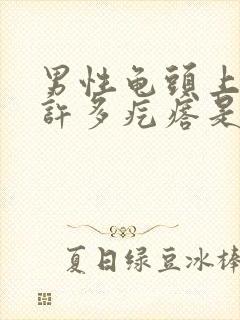 男性龟頭上
許多疙瘩是
夏日绿豆冰棒